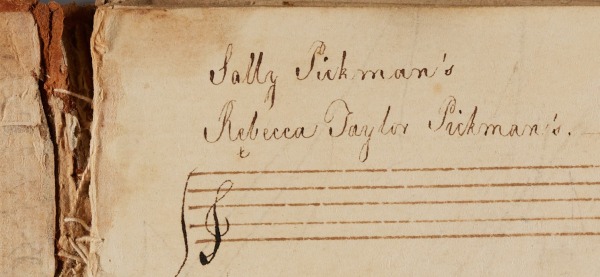 Sally Pickman's
Rebecca Taylor Pickman's.